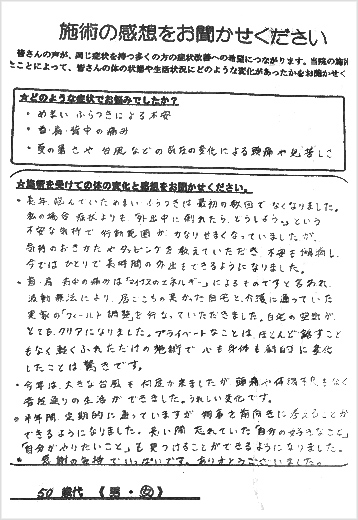 施術の感想をお聞かせください
皆さんの声が、同じ症状を持つ多くの方の症状改善への希望につながります。当院の施術
たことによって、皆さんの体の状態や生活状況にどのような変化があったかをお聞かせく
☆どのような症状でお悩みでしたか？
・めまい ふらつきによる不安
・首・肩・背中の痛み
・夏の暑さや台風などの気圧の変化による頭痛や息苦しさ
☆施術を受けての体の変化と感想をお聞かせください。
・長年 悩んでいためまい・ふらつきは最初の数回でなくなりました。
私の場合 症状よりも"外出中に倒れたら、どうしよう。"という
不安な気持で 行動範囲がかなりせまくなっていましたが、
気持のおきかたやタッピングを教えていただき 不安も解消し、
今ではひとりで長時間の外出もできるようになりました。
・首・肩 背中の痛みは「マイナスのエネルギー」によるものですと言われ、
波動療法により、居ごこちの悪かった自宅と、介護に通っていた
実家の「フィールド調整」を行なっていただきました。自宅の空気が
とてもクリアになりました。プライベートなことは ほとんど話すこと
もなく軽くふれただけの施術で 心も身体も劇的に変化
したことは 驚きです。
・今年は、大きな台風も何度か来ましたが 頭痛や体調不良もなく
普段通りの生活ができました。うれしい変化です。
・半年間 定期的に通っていますが 物事を前向きに考えることが
できるようになりました。長い間 忘れていた「自分の好きなこと」
「自分がやりたいこと」も見つけることができるようになりました。
・感謝の気持でいっぱいです。ありがとうございました。
50 歳代 《 男 ・ 女 》